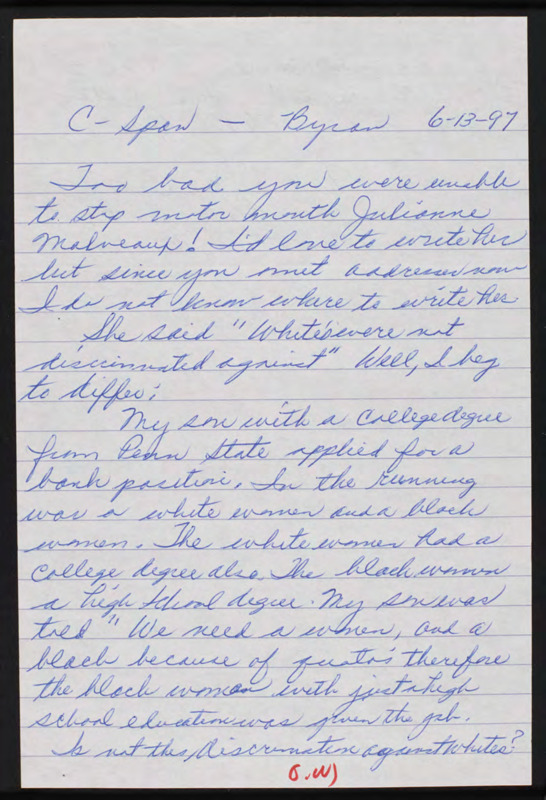 C-Span — Byron 6-13-97
Too bad you were unable
to stop motor mouth Julianne
Malveaux! I'd love to write her
but since you omit addresses now
I do not know where to write her.
She said "White's were not
discriminated against" Well, I beg
to differ:
My son with a college degree
from Penn State applied for a
bank position. In the running
was a white women and a black
women. The white women had a
college degree also. The black women
a high school degree. My son was
told "We need a women, and a
black because of quota's therefore
the black woman with just a high
school education was given the job.
Is not this, discrimation against Whites?